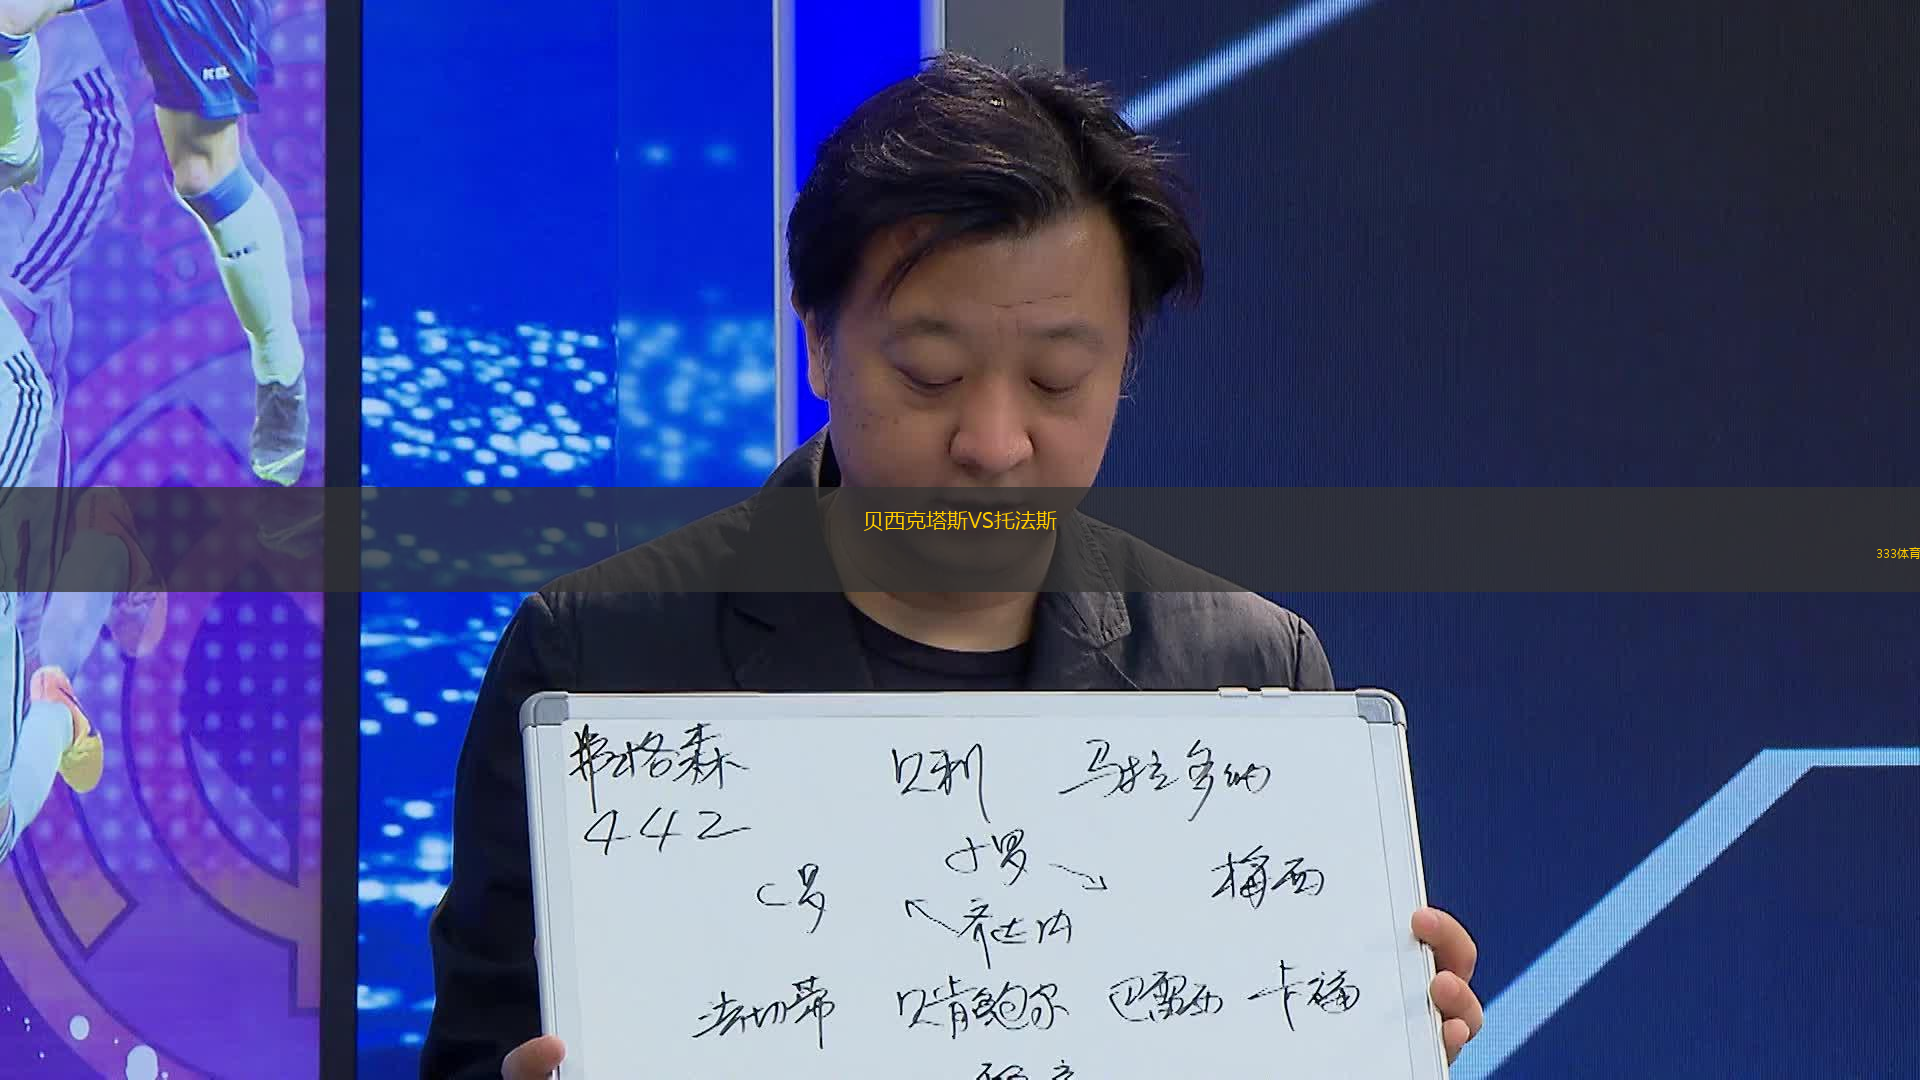 KEL
贝西克塔斯VS托法斯
333体育
弗格森 贝利 马拉多纳
442
小罗
C罗 梅西
齐达内
法切蒂 贝肯鲍尔 巴雷西 卡福